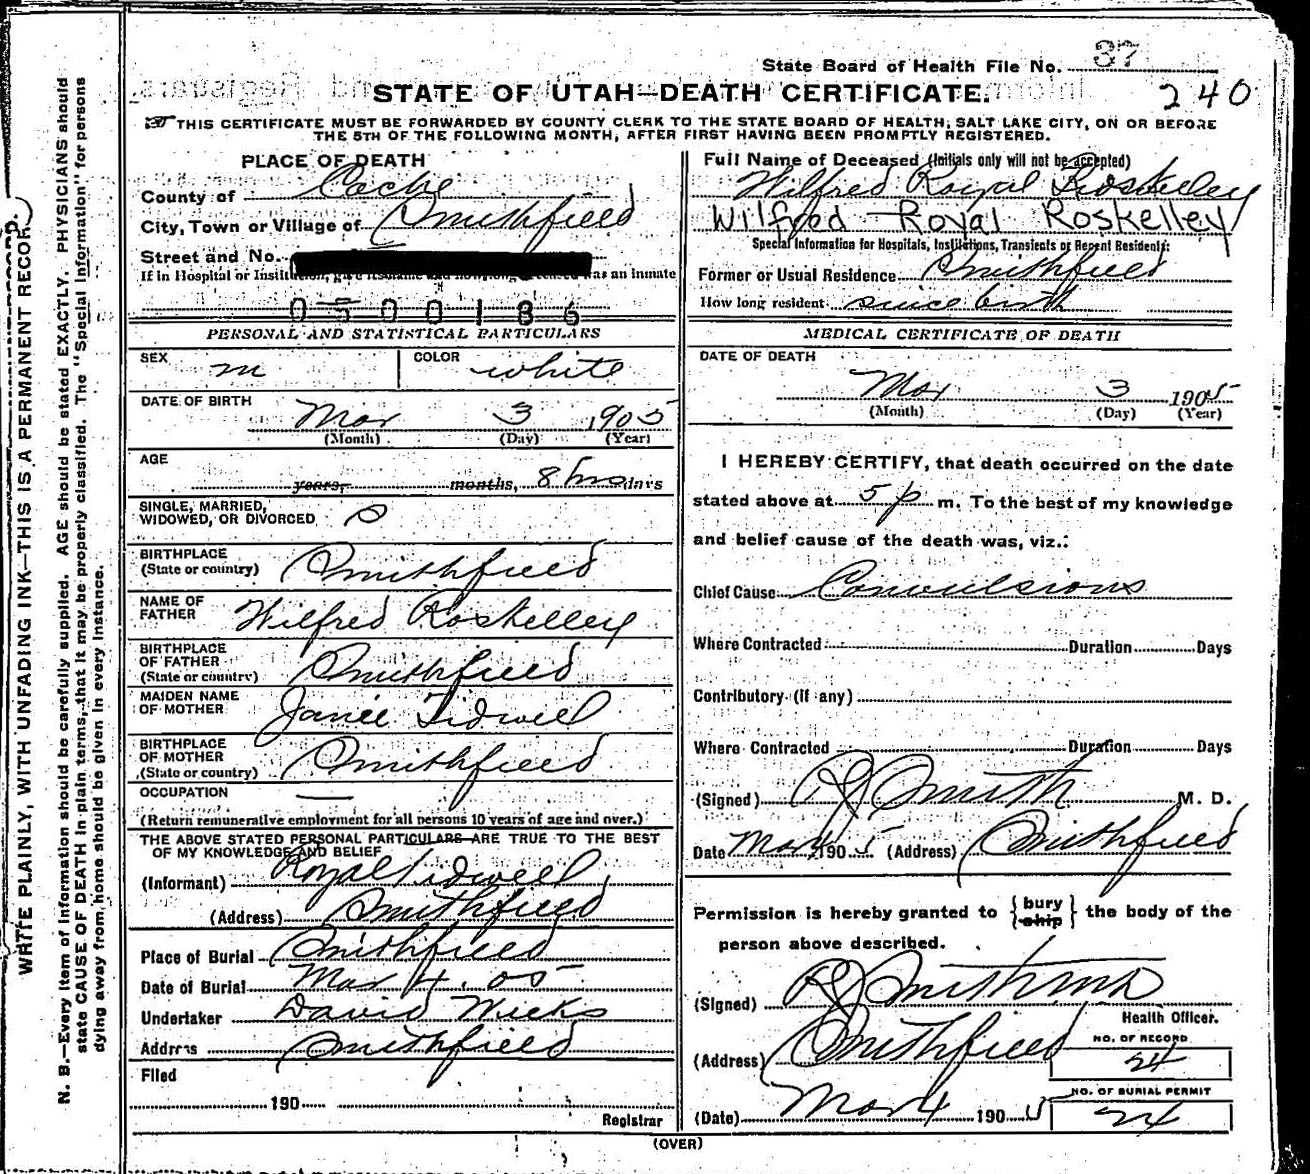 State Board of Health File No. 37
240
STATE OF UTAH—DEATH CERTIFICATE.
THIS CERTIFICATE MUST BE FORWARDED BY COUNTY CLERK TO THE STATE BOARD OF HEALTH, SALT LAKE CITY, ON OR BEFORE
THE 5TH OF THE FOLLOWING MONTH, AFTER FIRST HAVING BEEN PROMPTLY REGISTERED.
PLACE OF DEATH
County of Cache
City, Town or Village of Smithfield
Street and No.
If in Hospital or Institution, give its name and how long deceased was an inmate
0500186
PERSONAL AND STATISTICAL PARTICULARS
SEX m COLOR white
DATE OF BIRTH
Mar 3 1905
(Month) (Day) (Year)
AGE
years, months, 8 hrs days
SINGLE, MARRIED,
WIDOWED, OR DIVORCED S
BIRTHPLACE
(State or country) Smithfield
NAME OF
FATHER Wilfred Roskelley
BIRTHPLACE
OF FATHER
(State or country) Smithfield
MAIDEN NAME
OF MOTHER Janie Tidwell
BIRTHPLACE
OF MOTHER
(State or country) Smithfield
OCCUPATION —
(Return remunerative employment for all persons 10 years of age and over.)
THE ABOVE STATED PERSONAL PARTICULARS ARE TRUE TO THE BEST
OF MY KNOWLEDGE AND BELIEF
(Informant) Royal Tidwell
(Address) Smithfield
Place of Burial Smithfield
Date of Burial Mar 4. 05
Undertaker David Weeks
Address Smithfield
Filed
190
Registrar
Full Name of Deceased (Initials only will not be accepted)
Wilfred Royal Roskelley
Wilfred Royal Roskelley
Special Information for Hospitals, Institutions, Transients or Recent Residents:
Former or Usual Residence Smithfield
How long resident since birth
MEDICAL CERTIFICATE OF DEATH
DATE OF DEATH
Mar 3 1905
(Month) (Day) (Year)
I HEREBY CERTIFY, that death occurred on the date
stated above at 5 p m. To the best of my knowledge
and belief cause of the death was, viz.:
Chief Cause Convulsions
Where Contracted Duration Days
Contributory (if any)
Where Contracted Duration Days
(Signed) Smith M. D.
Date Mar 4 1905 (Address) Smithfield
Permission is hereby granted to {bury ship} the body of the
person above described.
(Signed) Smith MD
Health Officer.
(Address) Smithfield
NO. OF RECORD
24
(Date) Mar 4 1905
NO. OF BURIAL PERMIT
24
(OVER)
WRITE PLAINLY, WITH UNFADING INK—THIS IS A PERMANENT RECORD.
N. B.—Every item of information should be carefully supplied. AGE should be stated EXACTLY. PHYSICIANS should
state CAUSE OF DEATH in plain terms, that it may be properly classified. The "Special Information" for persons
dying away from home should be given in every instance.